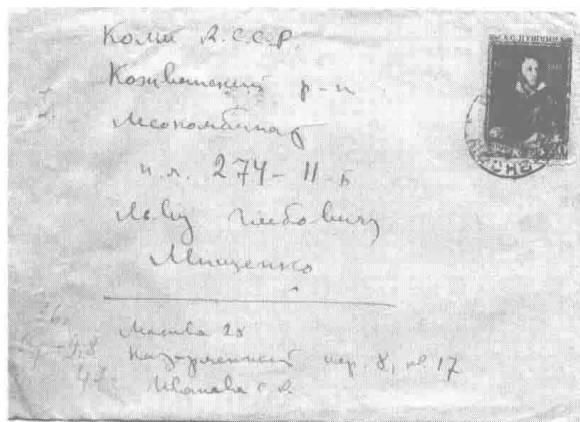 Коми А.С.С.Р.
Кожвинский р-н
Лесокомбинат
п.я. 274-11-б
Льву Глебовичу
Мищенко
Москва 28
Казарменный пер. 8, кв. 17
Иванова С.
А.С. ПУШКИН
26